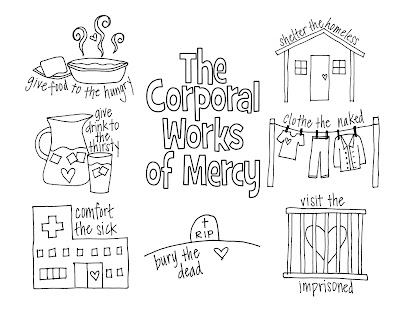 give food to the hungry
The
Corporal
Works
of Mercy
shelter the homeless
give
drink to
the
thirsty
clothe the naked
comfort
the sick
RIP
bury the
dead
visit the
imprisoned